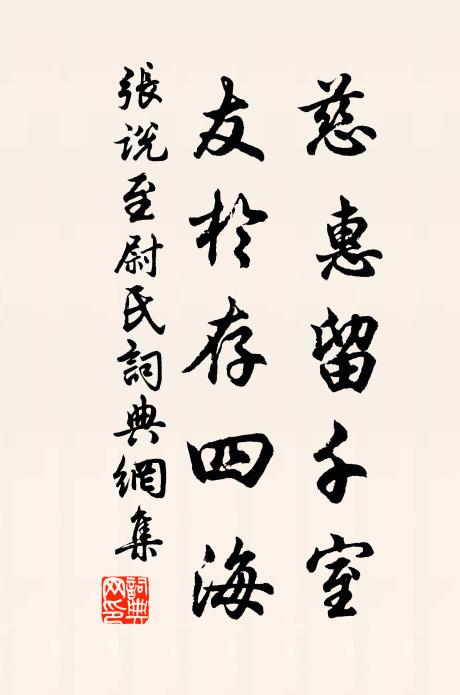 慈惠留千室
友於存四海
張說至尉氏詞典網集
詞典網印